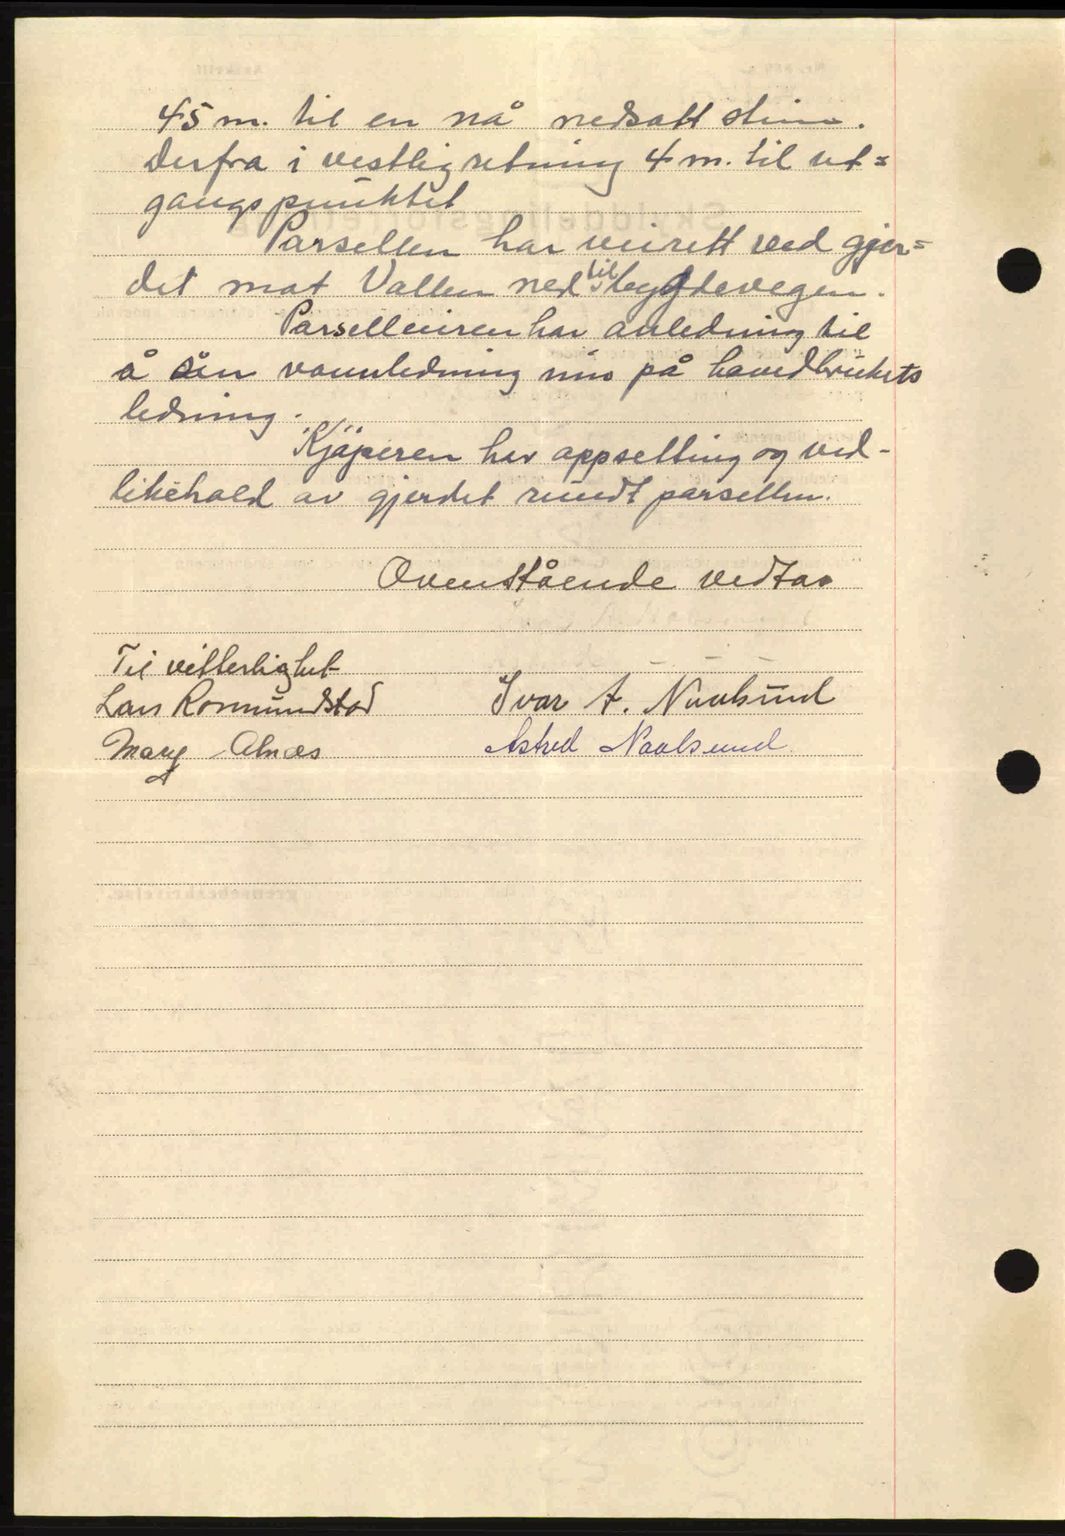 45 m. til en nå nedsatt stein.
Derfra i vestlig retning 4 m. til ut=
gangspunktet
Parsellen har veirett ved gjer=
det mot Vollen ned til bygdevegen.
Parselleieren har anledning til
å vannledning inn på hovedbrukets
ledning.
Kjøperen har oppsetting og ved-
likehold av gjerdet rundt parsellen.
Ovenstående vedtas
Til vitterlighet
Lars Romundstad
Ivar A. Naalsund
Mary Alnæs
Astrid Naalsund